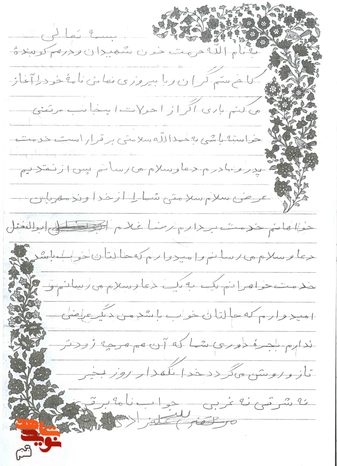 بسمه تعالی
به نام الله حرمت خون شهیدان و درهم کوبنده
کاخ ستمگران و با پیروزی تمامی نامه خود را آغاز
می کنم باری اگر از احولات اینجانب مرتضی
خواسته باشی به حمدالله سلامتی برقرار است خدمت
پدر و مادرم دعا و سلام می رسانم پس از تقدیم
عرض سلام سلامتی شما را از خداوند مهربان
خواهانم خدمت برادرم رضا غلام ابوالفضل
دعا و سلام می رسانم و امیدوارم که حالتان خوب باشد
خدمت خواهرانم یک به یک دعا و سلام می رسانم و
امیدوارم که حالتان خوب باشد من دیگر عرضی
ندارم بجزء دوری شما که آن هم هرچه زودتر
تازو روشن می گردد خدا نگهدار روز بخیر
نه شرقی نه غربی جواب نامه برقی
مرتضی
نوید شاهد
قم